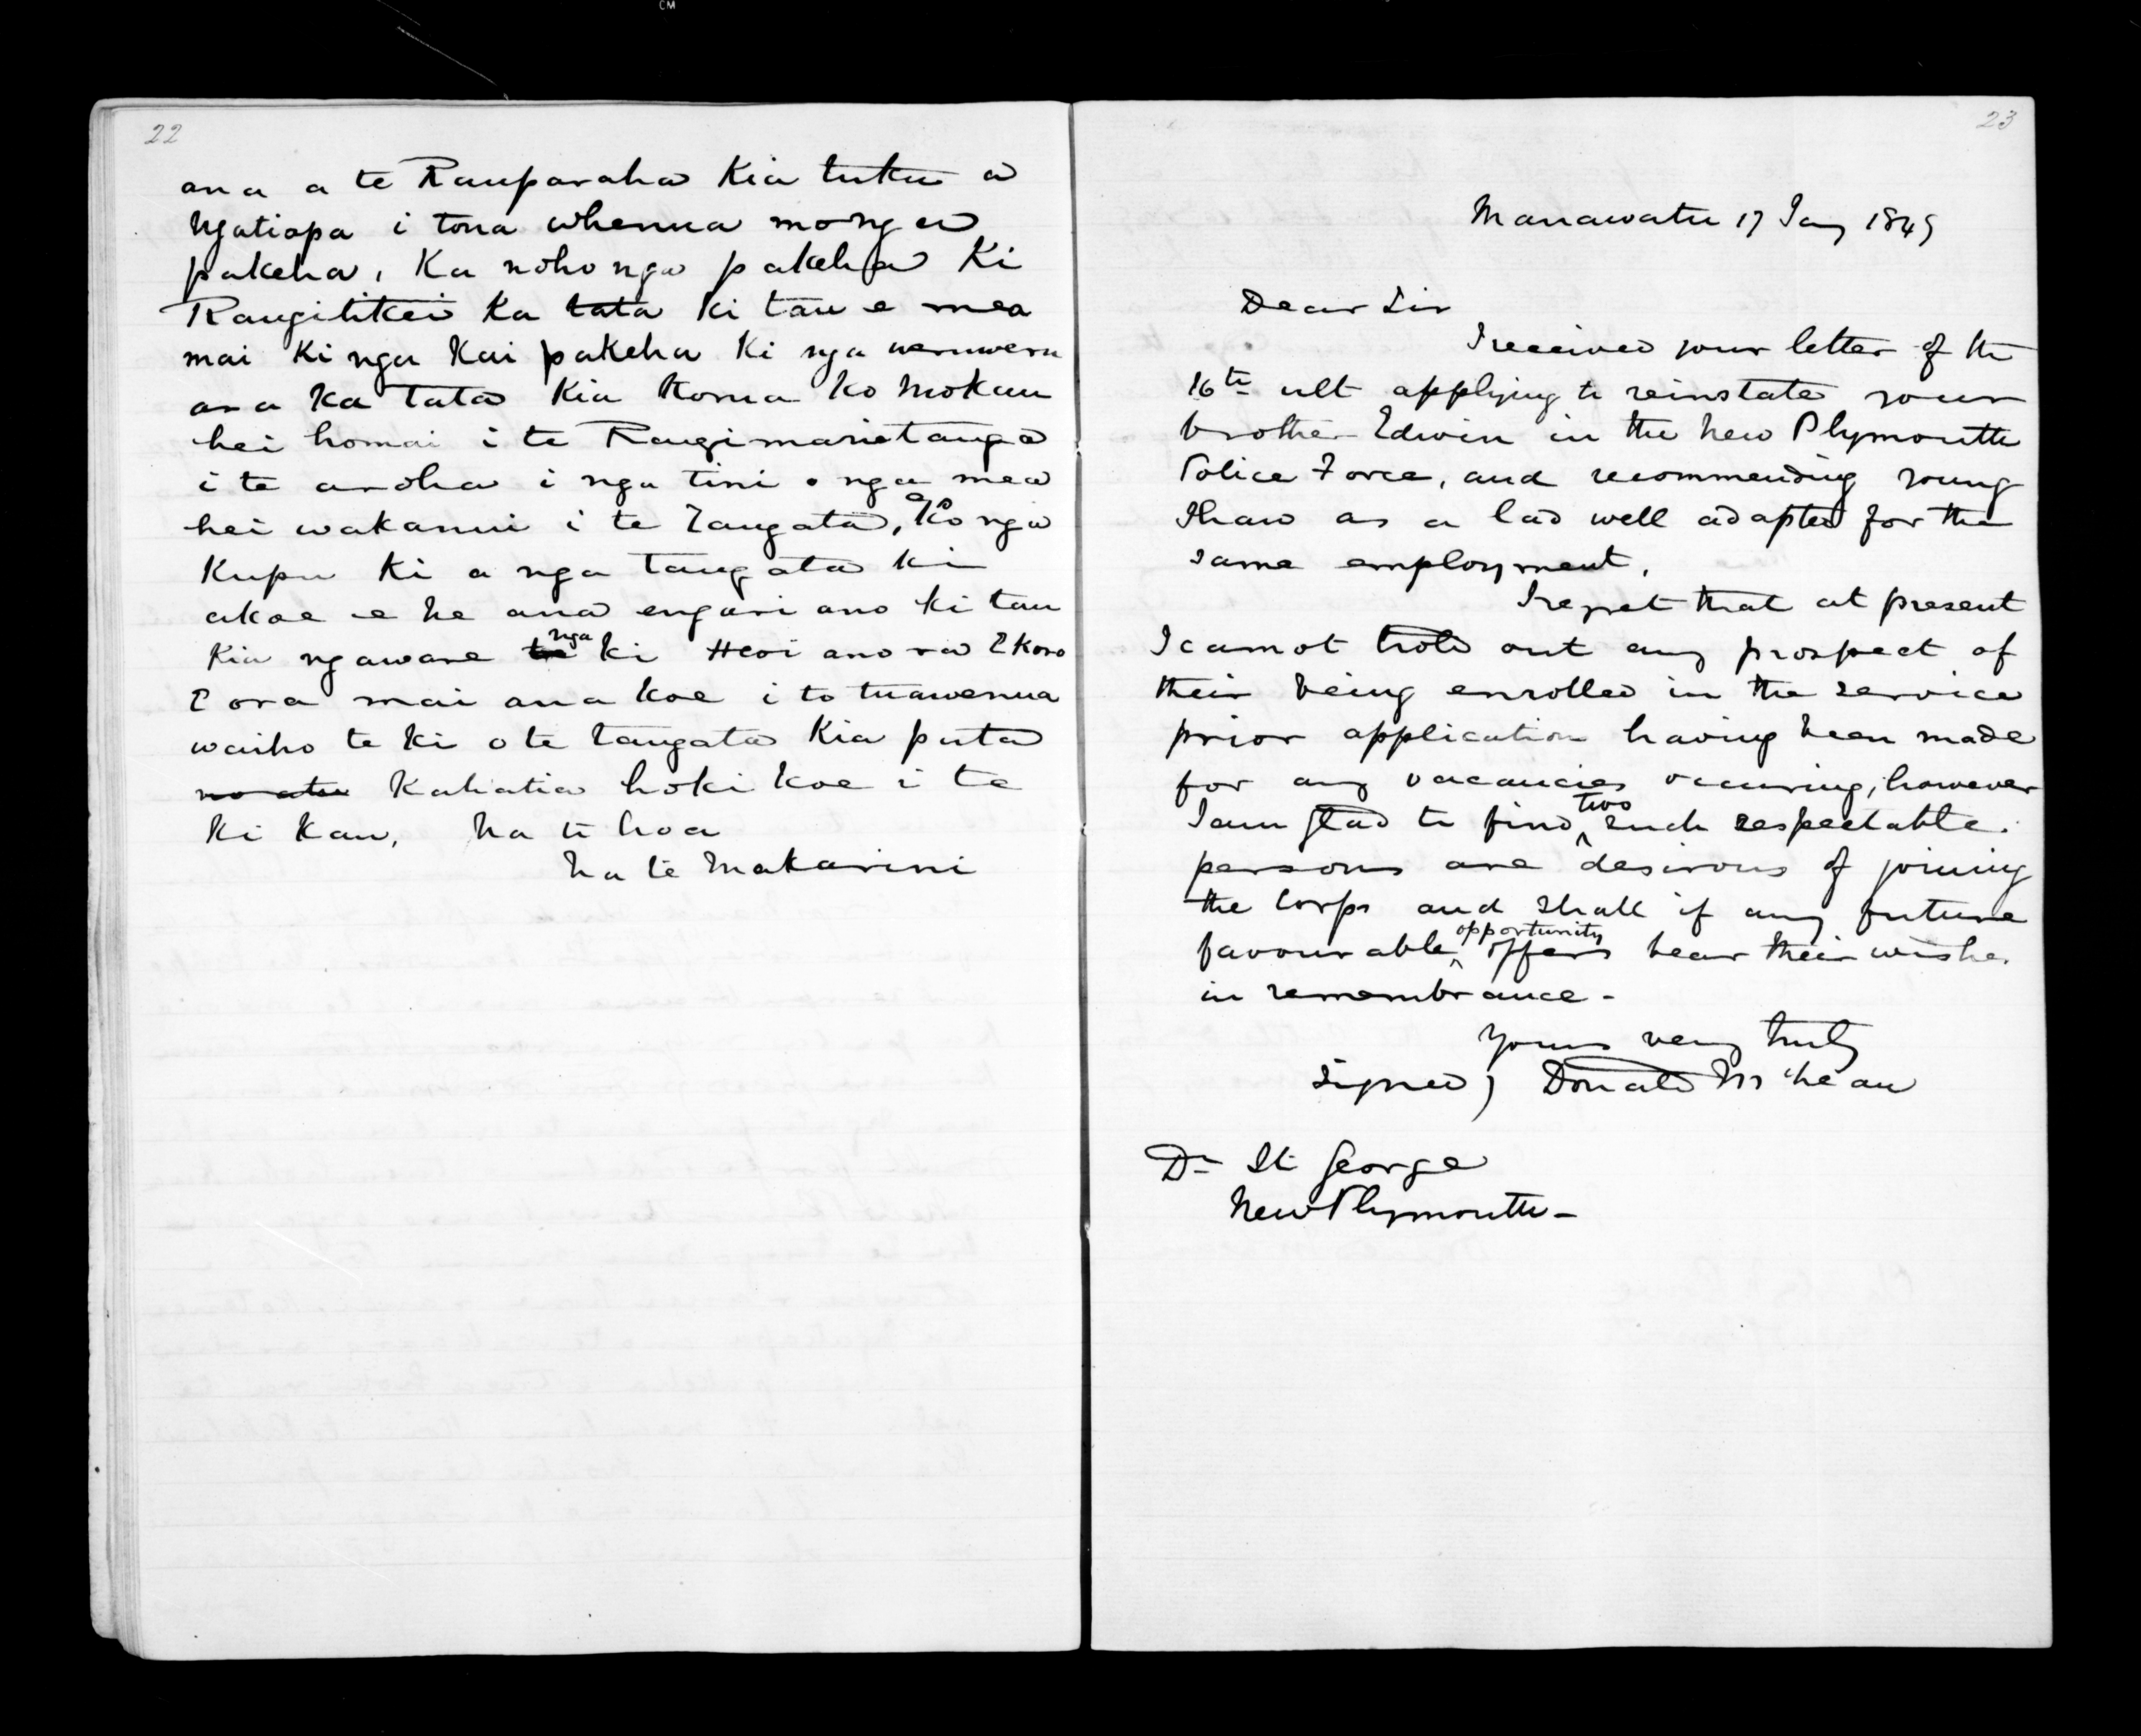 22
ana a te Rauparaha Kia tuku a
Ngatiapa i tona whenua mo nga
pakeha, Ka noho nga pakeha Ki
Rangitikei Ka tata Ki tau e mea
mai Ki nga Kai pakeha Ki nga weruweru
ana Ka tata Kia Koma Ko Mokau
hei homai i te Rangimarietanga
i te aroha i nga tini o nga mea
hei wakanui i te Tangata, Ko nga
Kupu Ki a nga Tangata ki
akoe e he ana engari ano ki tau
Kia ngawane te nga ki Heoi ano ra E Koro
E ora mai ana koe i to tuawenua
waiho te ki o te tangata Kia puta
no atu Kahatia hoki koe i te
Ki Kau, Na te hoa
Na te Makarini
23
Manawatu 17 Jany 1849
Dear Sir
I received your letter of the
16th ult applying to reinstate your
brother Edwin in the New Plymouth
Police Force, and recommending young
Shaw as a lad well adapted for the
same employment.
I regret that at present
I cannot hold out any prospect of
their being enrolled in the service
prior application having been made
for any vacancies occuring, however
I am glad to find two such respectable
persons are desirous of joining
the Corps and shall if any future
favourable opportunity offers bear their wishes
in remembrance -
Yours very truly
Signed) Donald McLean
Dr St George
New Plymouth -